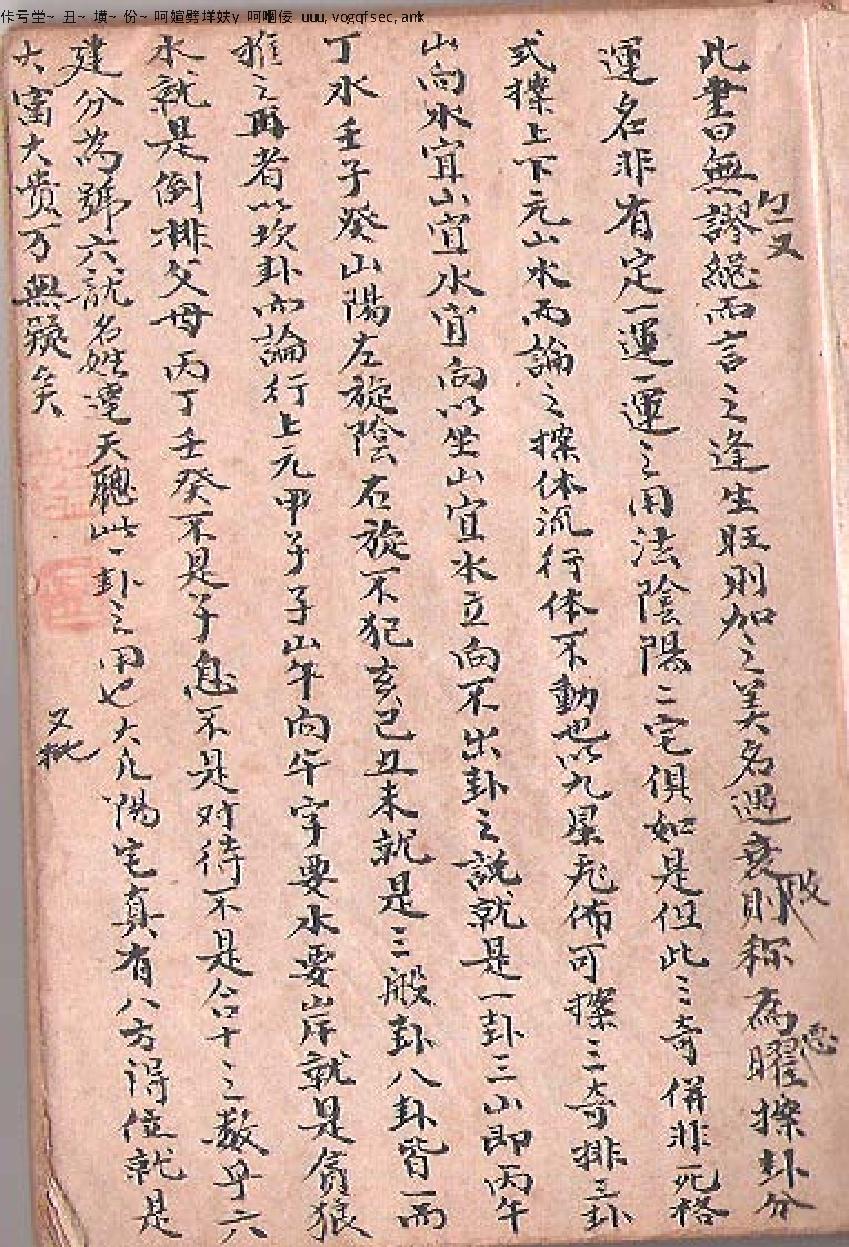 此書曰無謬總而言之逢生旺則加之美名遇衰則称為曜搩卦分
運名非有定一運一運之用法陰陽二宅俱如是但此三奇併非死格
式搩上下元山水而論之搩体流行体不動也以九星飛佈可搩三奇排三卦
山向水宜山宜水宜向以坐山宜水立向不出卦之説就是一卦三山即丙午
丁水壬子癸山陽左旋陰右旋不犯亥己丑未就是三般卦八卦皆一而
推之再者以坎卦而論行上元甲子子山午向午字要水要岸就是貪狼
水就是倒排父母丙丁壬癸不是子息不是对待不是合十之数乎六
建分為號六説名姓遭天聰此一卦之用也大凡陽宅真有八方得位就是
大富大贵万無疑矣
又批